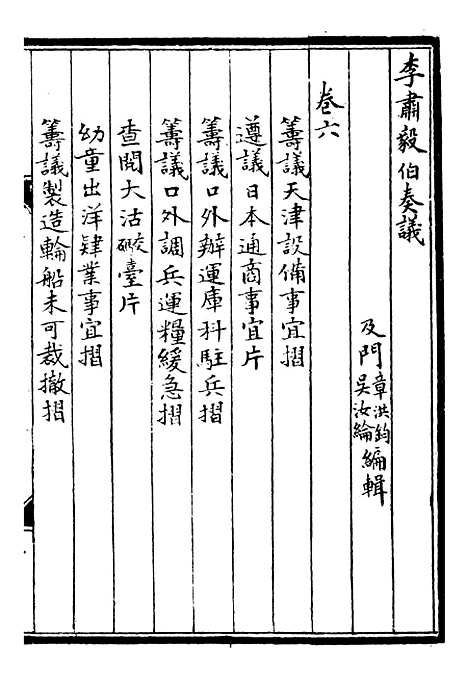 李肅毅伯奏議
及門章洪鈞吳汝綸編輯
卷六
籌議天津設備事宜摺
遵議日本通商事宜片
籌議口外辦運庫科駐兵摺
籌議口外調兵運糧緩急摺
查閱大沽礮臺片
幼童出洋肄業事宜摺
籌議製造輪船未可裁撤摺